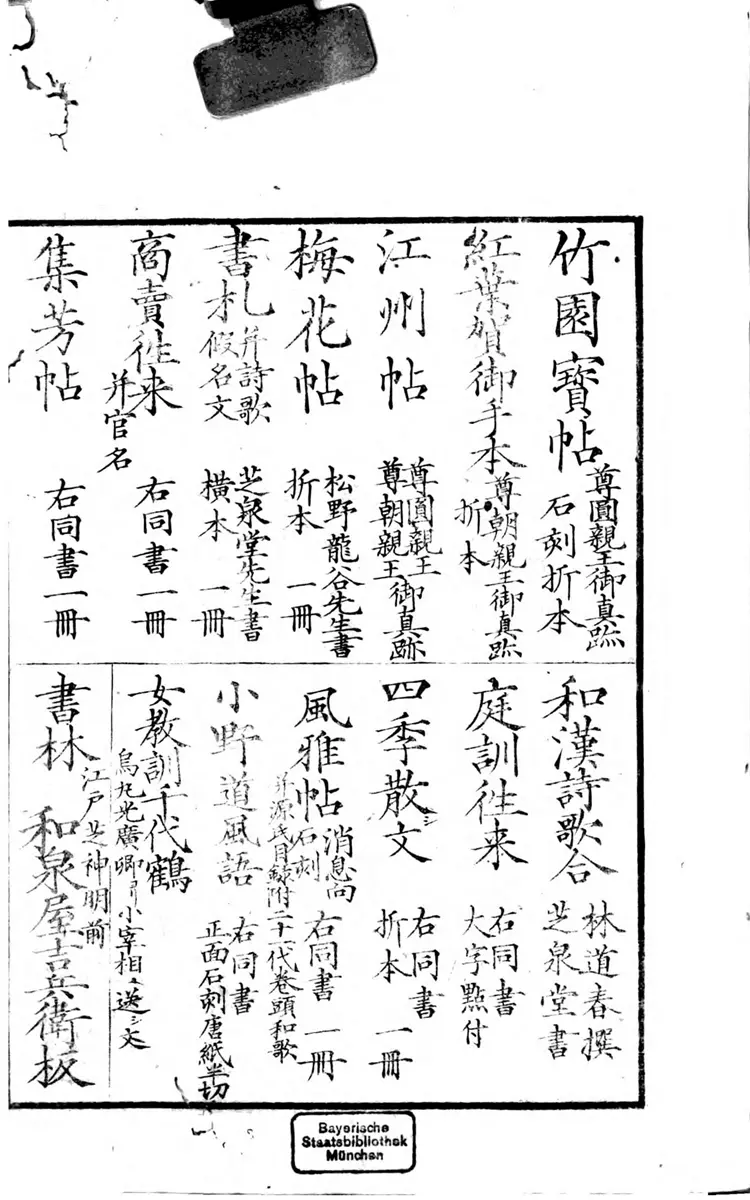 竹園寶帖
尊圓親王御真跡
石刻折本
紅葉賀御手本
尊朝親王御真跡
折本
江州帖
尊圓親王
尊朝親王御真跡
梅花帖
松野龍谷先生書
折本 一冊
書札
并詩歌
假名文
芝泉堂先生書
横本 一冊
商賣徃来
并官名
右同書一冊
集芳帖
右同書一冊
和漢詩歌合
林道春撰
芝泉堂書
庭訓徃来
右同書
大字點付
四季散文
右同書
折本 一冊
風雅帖
消息向
石刻
右同書 一冊
并源氏目録附二十一代巻頭和歌
小野道風語
右同書
正面石刻唐紙半切
女教訓千代鶴
烏丸光廣卿ヨリ小宰相ヘ送ル文
書林
江戸芝神明前
和泉屋吉兵衛板
Bayerische
Staatsbibliothek
München